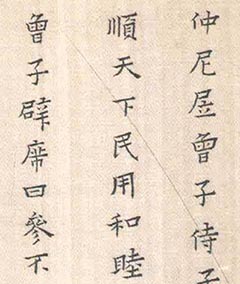 仲尼居曾子侍子
順天下民用和睦
曾子辟席曰參不